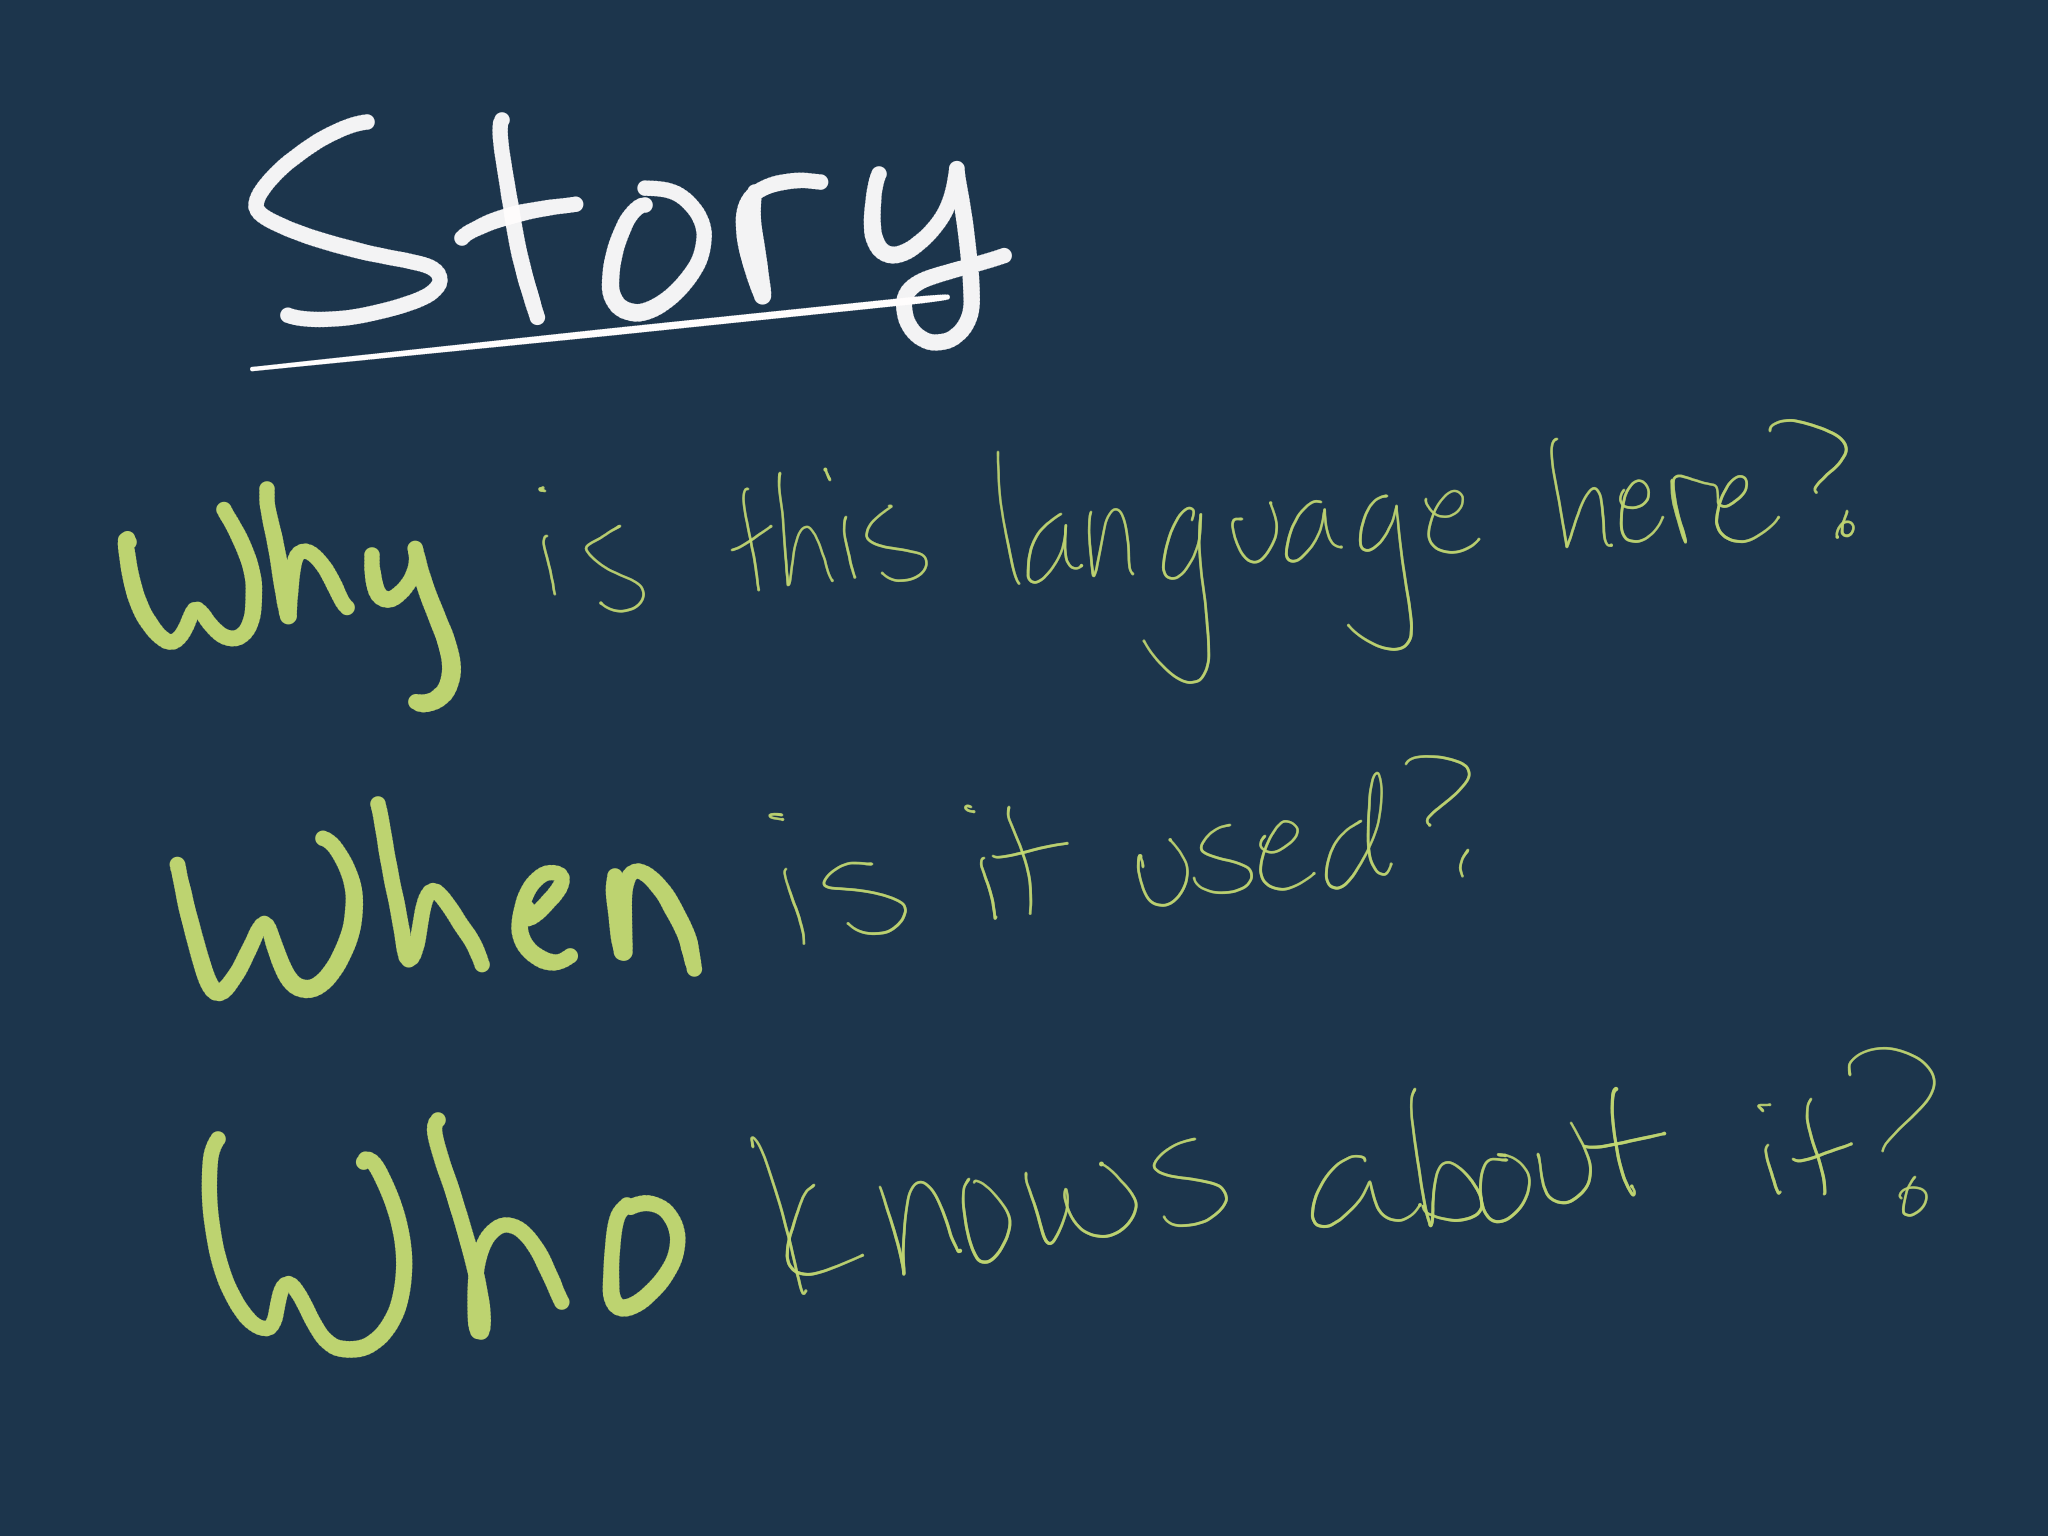 Story
Why is this language here?
When is it used?
Who knows about it?